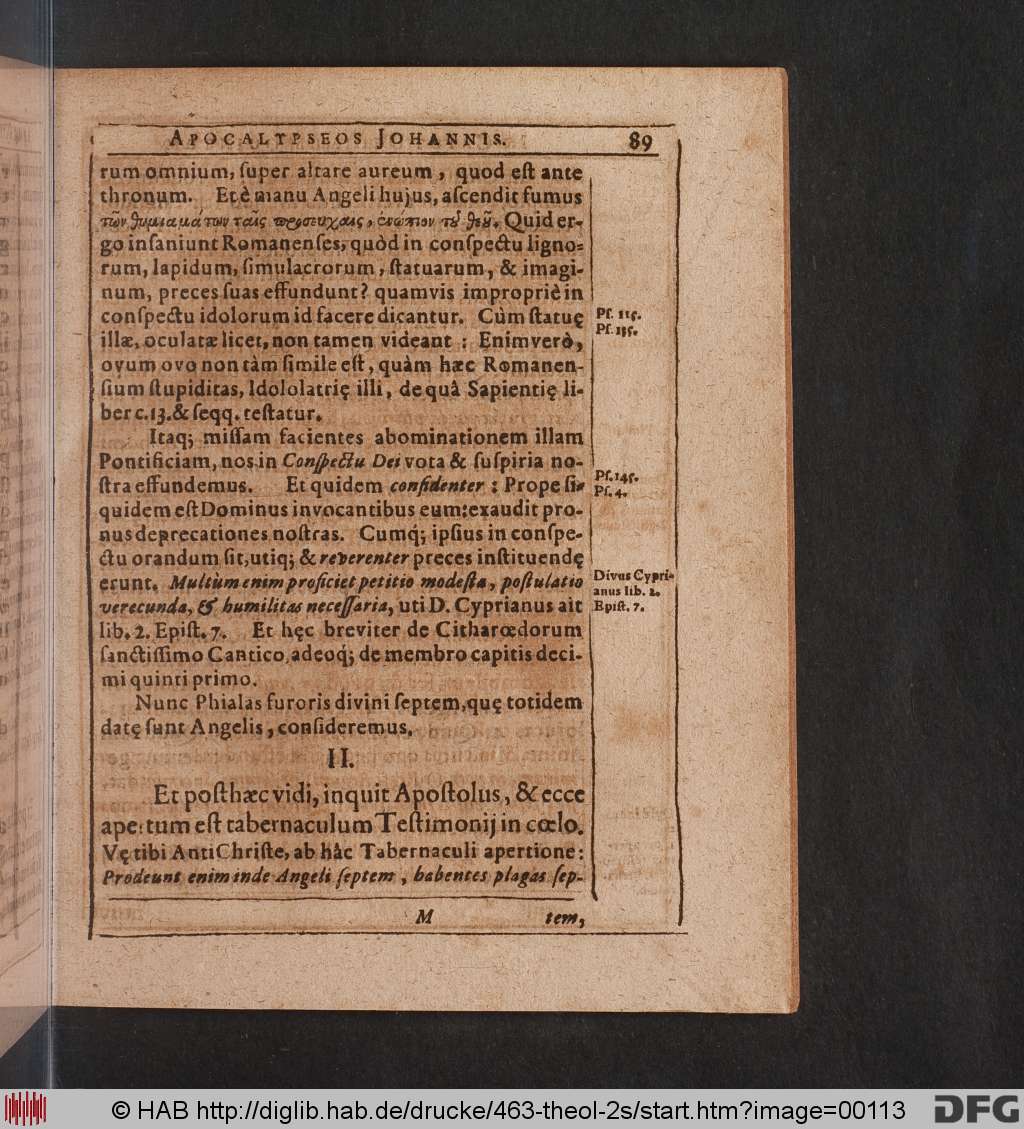 APOCALYPSEOS JOHANNIS. 89
rum omnium, ſuper altare aureum, quod eſt ante
thronum. Et è manu Angeli hujus, aſcendit fumus
τῶν θυμιαμάτων ταῖς προσευχαις, ἐνώπιον τȣ͂ θεȣ͂. Quid er-
go inſaniunt Romanenſes, quòd in conſpectu ligno-
rum, lapidum, ſimulacrorum, ſtatuarum, & imagi-
num, preces ſuas effundunt? quamvis impropriè in
conſpectu idolorum id facere dicantur. Cùm ſtatuę
Pſ. 115.
Pſ. 135.
illæ, oculatæ licet, non tamen videant: Enimverò,
ovum ovo non tàm ſimile eſt, quàm hæc Romanen-
ſium ſtupiditas, Idololatrię illi, de quâ Sapientię li-
ber c. 13. & ſeqq. teſtatur.
Itaq; miſſam facientes abominationem illam
Pontificiam, nos in Conſpectu Dei vota & ſuſpiria no-
ſtra effundemus. Et quidem confidenter: Prope ſi-
Pſ. 145.
Pſ. 4.
quidem eſt Dominus invocantibus eum: exaudit pro-
nus deprecationes noſtras. Cumq; ipſius in conſpe-
ctu orandum ſit, utiq; & reverenter preces inſtituendę
erunt. Multùm enim proficiet petitio modeſta, poſtulatio
verecunda, & humilitas neceſſaria, uti D. Cyprianus ait
Divus Cypri-
anus lib. 2.
Epiſt. 7.
lib. 2. Epiſt. 7. Et hęc breviter de Citharœdorum
ſanctiſſimo Cantico, adeoq; de membro capitis deci-
mi quinti primo.
Nunc Phialas furoris divini ſeptem, quę totidem
datę ſunt Angelis, conſideremus.
II.
Et poſthæc vidi, inquit Apoſtolus, & ecce
apertum eſt tabernaculum Teſtimonij in cœlo.
Vę tibi AntiChriſte, ab hâc Tabernaculi apertione:
Prodeunt enim inde Angeli ſeptem, habentes plagas ſep-
M tem,
© HAB http://diglib.hab.de/drucke/463-theol-2s/start.htm?image=00113
DFG